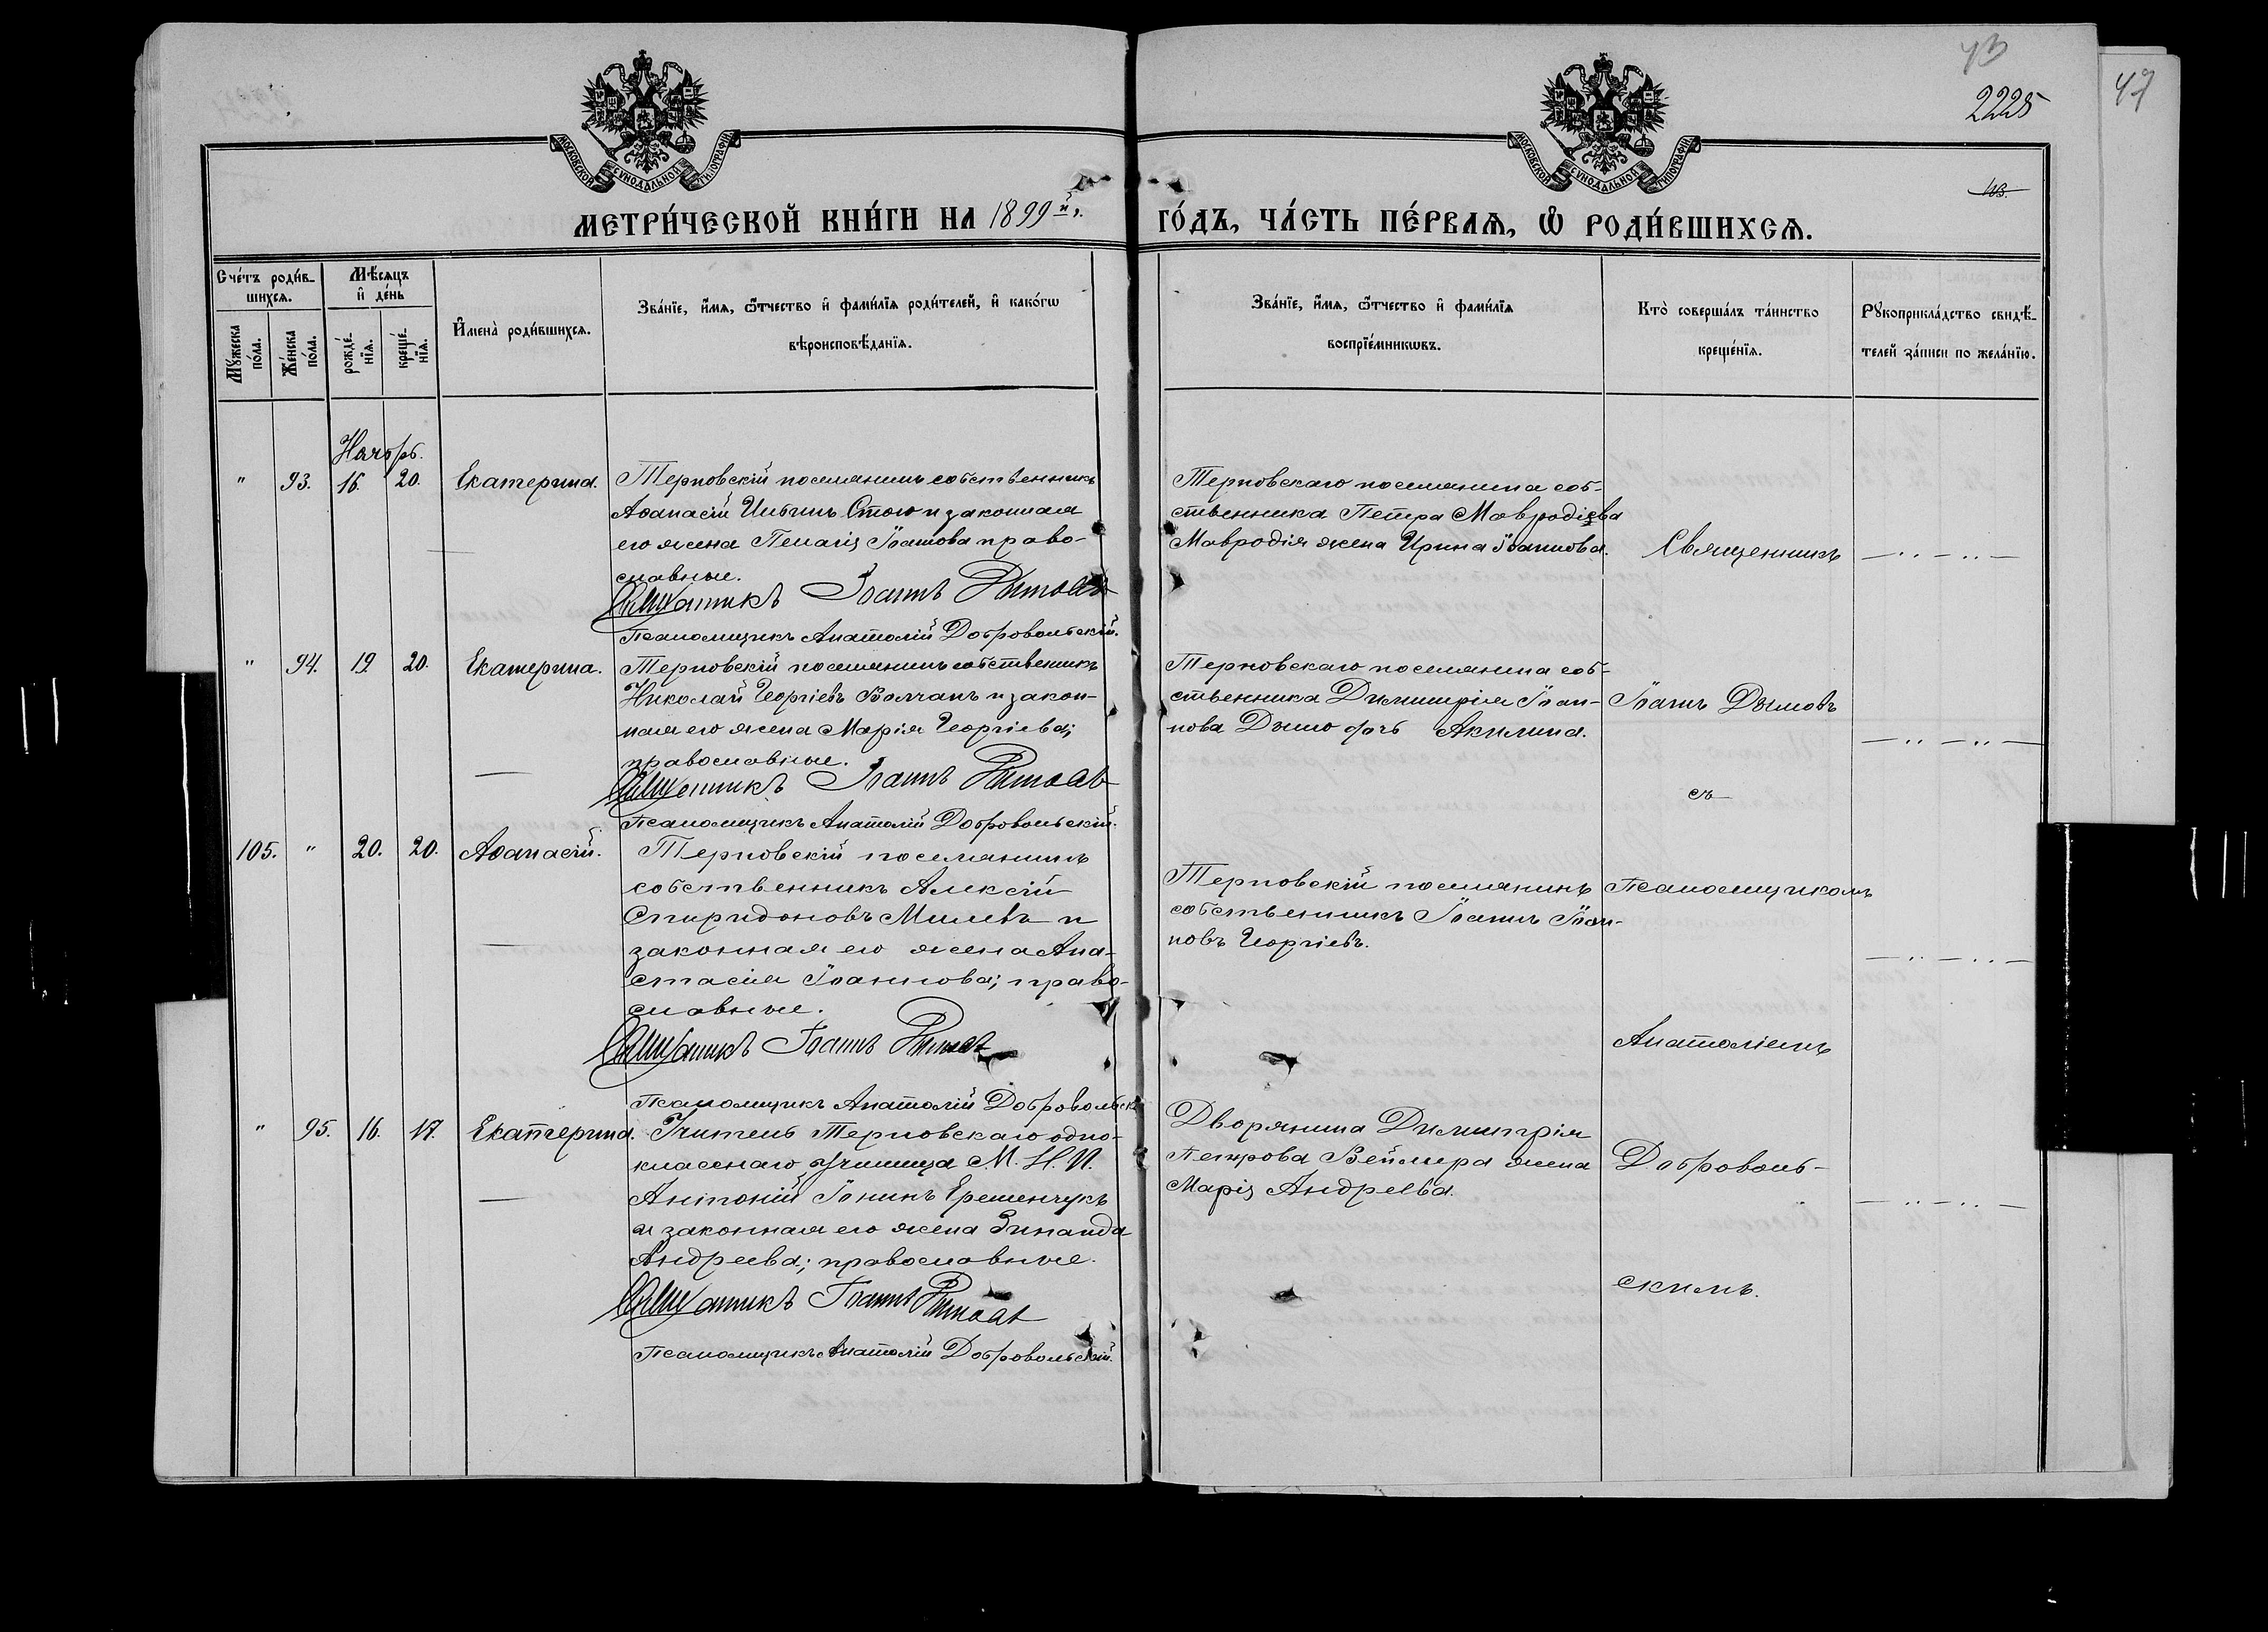 43
2225
47
МОСКОВСКОЙ СѴНОДАЛЬНОЙ ТИПОГРАФІИ
МОСКОВСКОЙ СѴНОДАЛЬНОЙ ТИПОГРАФІИ
103.
МЕТРИ́ЧЕСКОЙ КНИ́ГИ НА 1899й г.
ГО́ДЪ, ЧА́СТЬ ПЕ́РВАѦ, Ѽ РОДИ́ВШИХСѦ.
Сче́тъ роди́в-
шихсѧ.
Мꙋ́жеска по́ла.
Же́нска по́ла.
Мѣ́сѧцъ
и҆ де́нь
рожде́-нїѧ.
креще́-нїѧ.
И҆мена̀ роди́вшихсѧ.
Зва́нїе, и҆́мѧ, ѻ҆́тчество и҆ фами́лїѧ роди́телей, и҆ како́гѡ
вѣроисповѣ́данїѧ.
Зва́нїе, и҆́мѧ, ѻ҆́тчество и҆ фами́лїѧ
воспрїе́мникѡвъ.
Кто̀ соверша́лъ та́инство
креще́нїѧ.
Рꙋкоприкла́дство свидѣ́-
телей за́писи по жела́нїю.
Ноябрь.
" 93. 16. 20. Екатерина.
Терновскій поселянинъ собственникъ
Аѳанасій Ильинъ Стою и законная
его жена Пелагія Іоаннова право-
славные.
Священникъ Іоаннъ
Псаломщикъ Анатолій Добровольскій.
Терновскаго поселянина соб-
ственника Петра Мавродіева
Мавродія жена Ирина Іоаннова.
Священникъ
" 94. 19. 20. Екатерина.
Терновскій поселянинъ собственникъ
Николай Георгіевъ Волчанъ и закон-
ная его жена Марія Георгіева;
православные.
Священникъ Іоаннъ
Псаломщикъ Анатолій Добровольскій.
Терновскаго поселянина соб-
ственника Димитрія Іоан-
нова Дымо дочь Акилина.
Іоаннъ Дымовъ
съ
105. " 20. 20. Аѳанасій.
Терновскій поселянинъ
собственникъ Алексій
Спиридоновъ Милевъ и
законная его жена Ана-
стасія Іоаннова; право-
славные.
Священникъ Іоаннъ
Псаломщикъ Анатолій Добровольск
Терновскій поселянинъ
собственникъ Іоаннъ Іоан-
новъ Георгіевъ.
Псаломщикомъ
Анатоліемъ
" 95. 16. 17. Екатерина.
Учитель Терновскаго одно-
класснаго училища М. Н. П.
Антоній Іонинъ Еременчукъ
и законная его жена Зинаида
Андреева; православные.
Священникъ Іоаннъ
Псаломщикъ Анатолій Добровольскій.
Дворянина Димитрія
Петрова Веймера жена
Марія Андреева.
Доброволь-
скимъ.